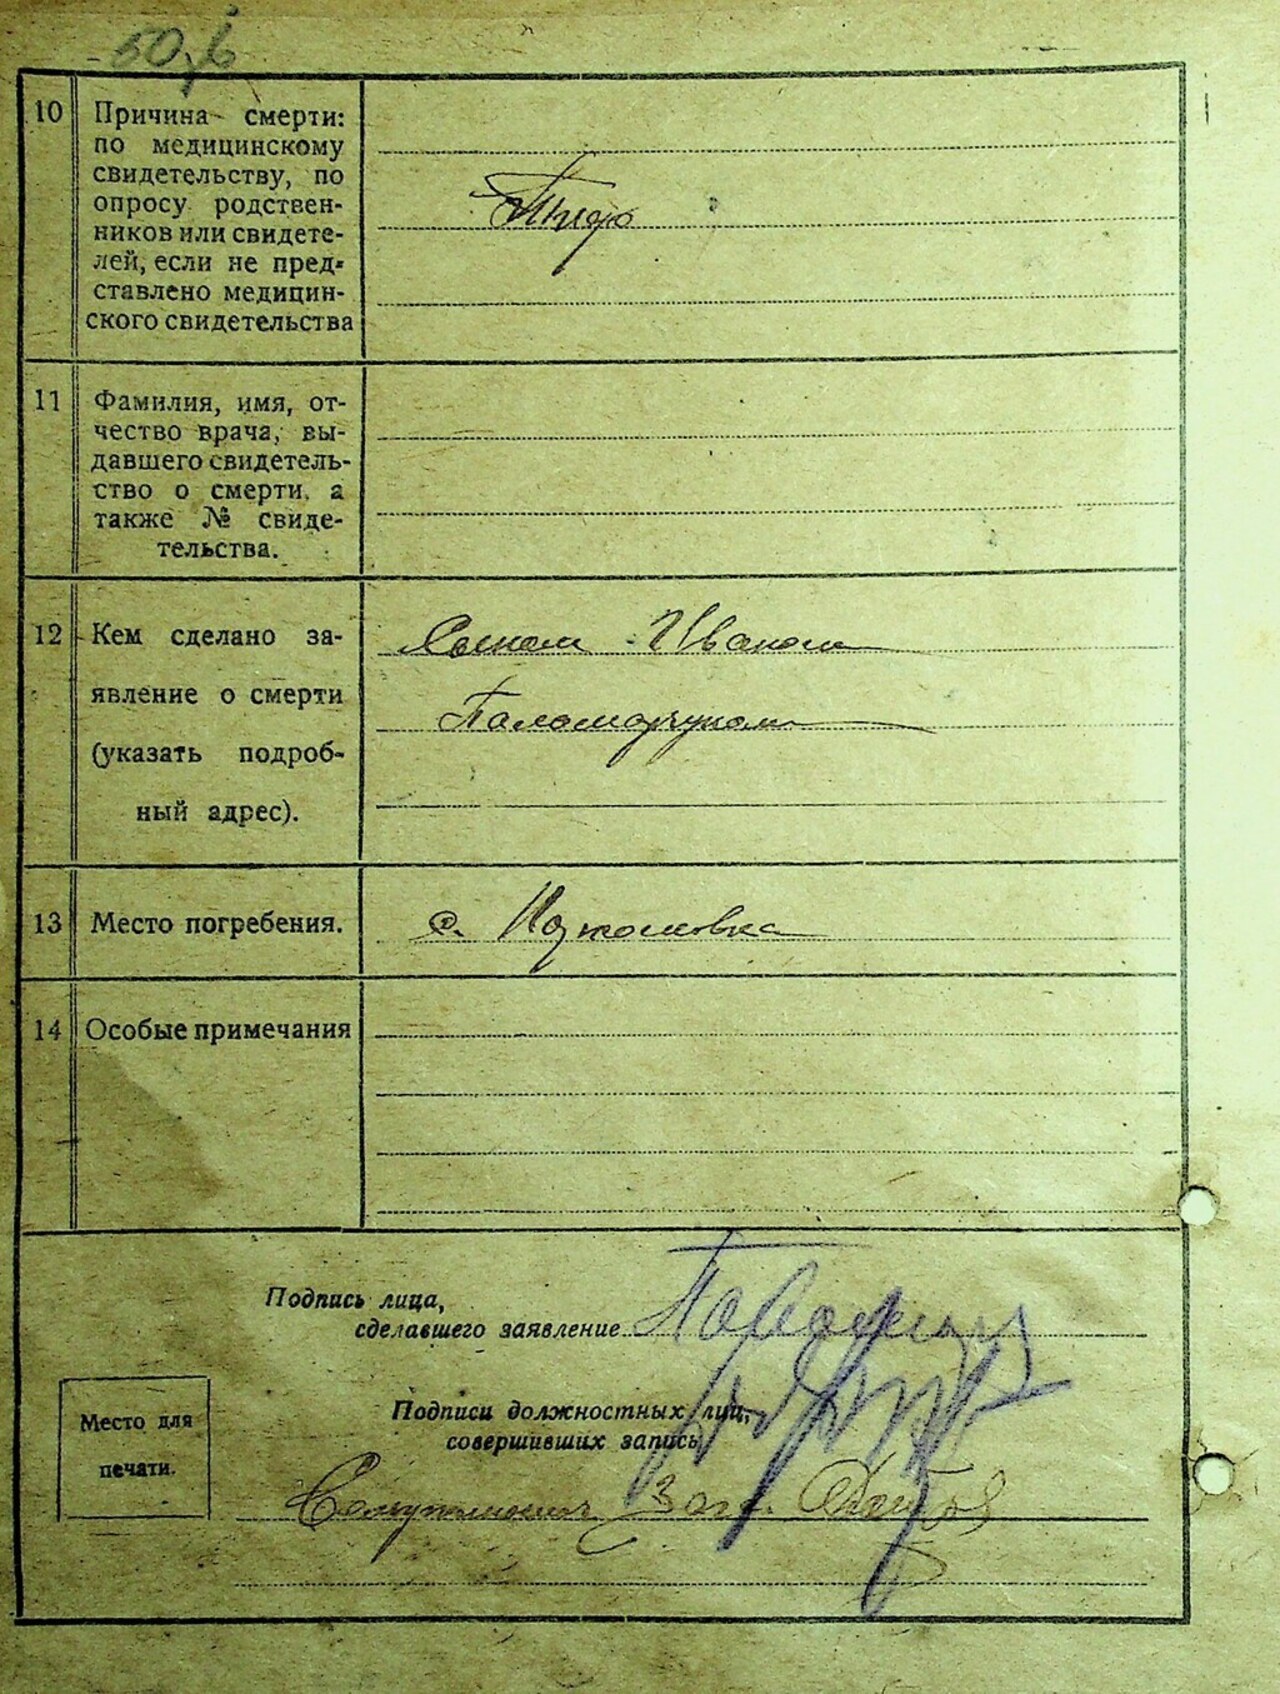 10 Причина смерти:
по медицинскому
свидетельству, по
опросу родствен-
ников или свидете-
лей, если не пред-
ставлено медицин-
ского свидетельства
Тиф
11 Фамилия, имя, от-
чество врача, вы-
давшего свидетель-
ство о смерти, а
также № свиде-
тельства.
12 Кем сделано за-
явление о смерти
(указать подроб-
ный адрес).
Сыном Иваном
Паламарчуком
13 Место погребения.
с.
14 Особые примечания
Подпись лица,
сделавшего заявление
Подписи должностных лиц,
совершивших запись
Место для
печати.